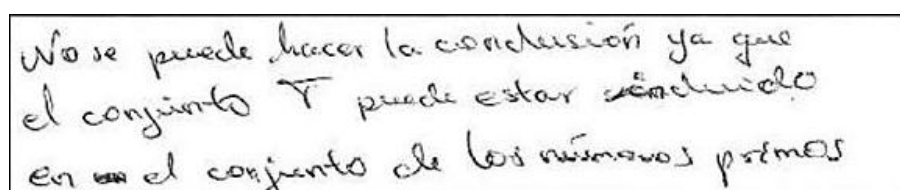 No se puede hacer la conclusión ya que
el conjunto T puede estar incluido
en el conjunto de los números primos